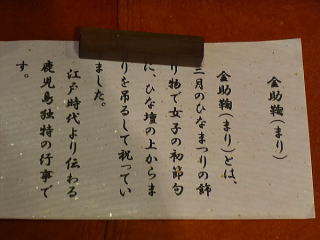 金助鞠(まり)
金助鞠(まり)とは、
三月のひなまつりの飾
り物で女子の初節句
に、ひな壇の上からま
りを吊るして祝ってい
ました。
江戸時代より伝わる
鹿児島独特の行事で
す。